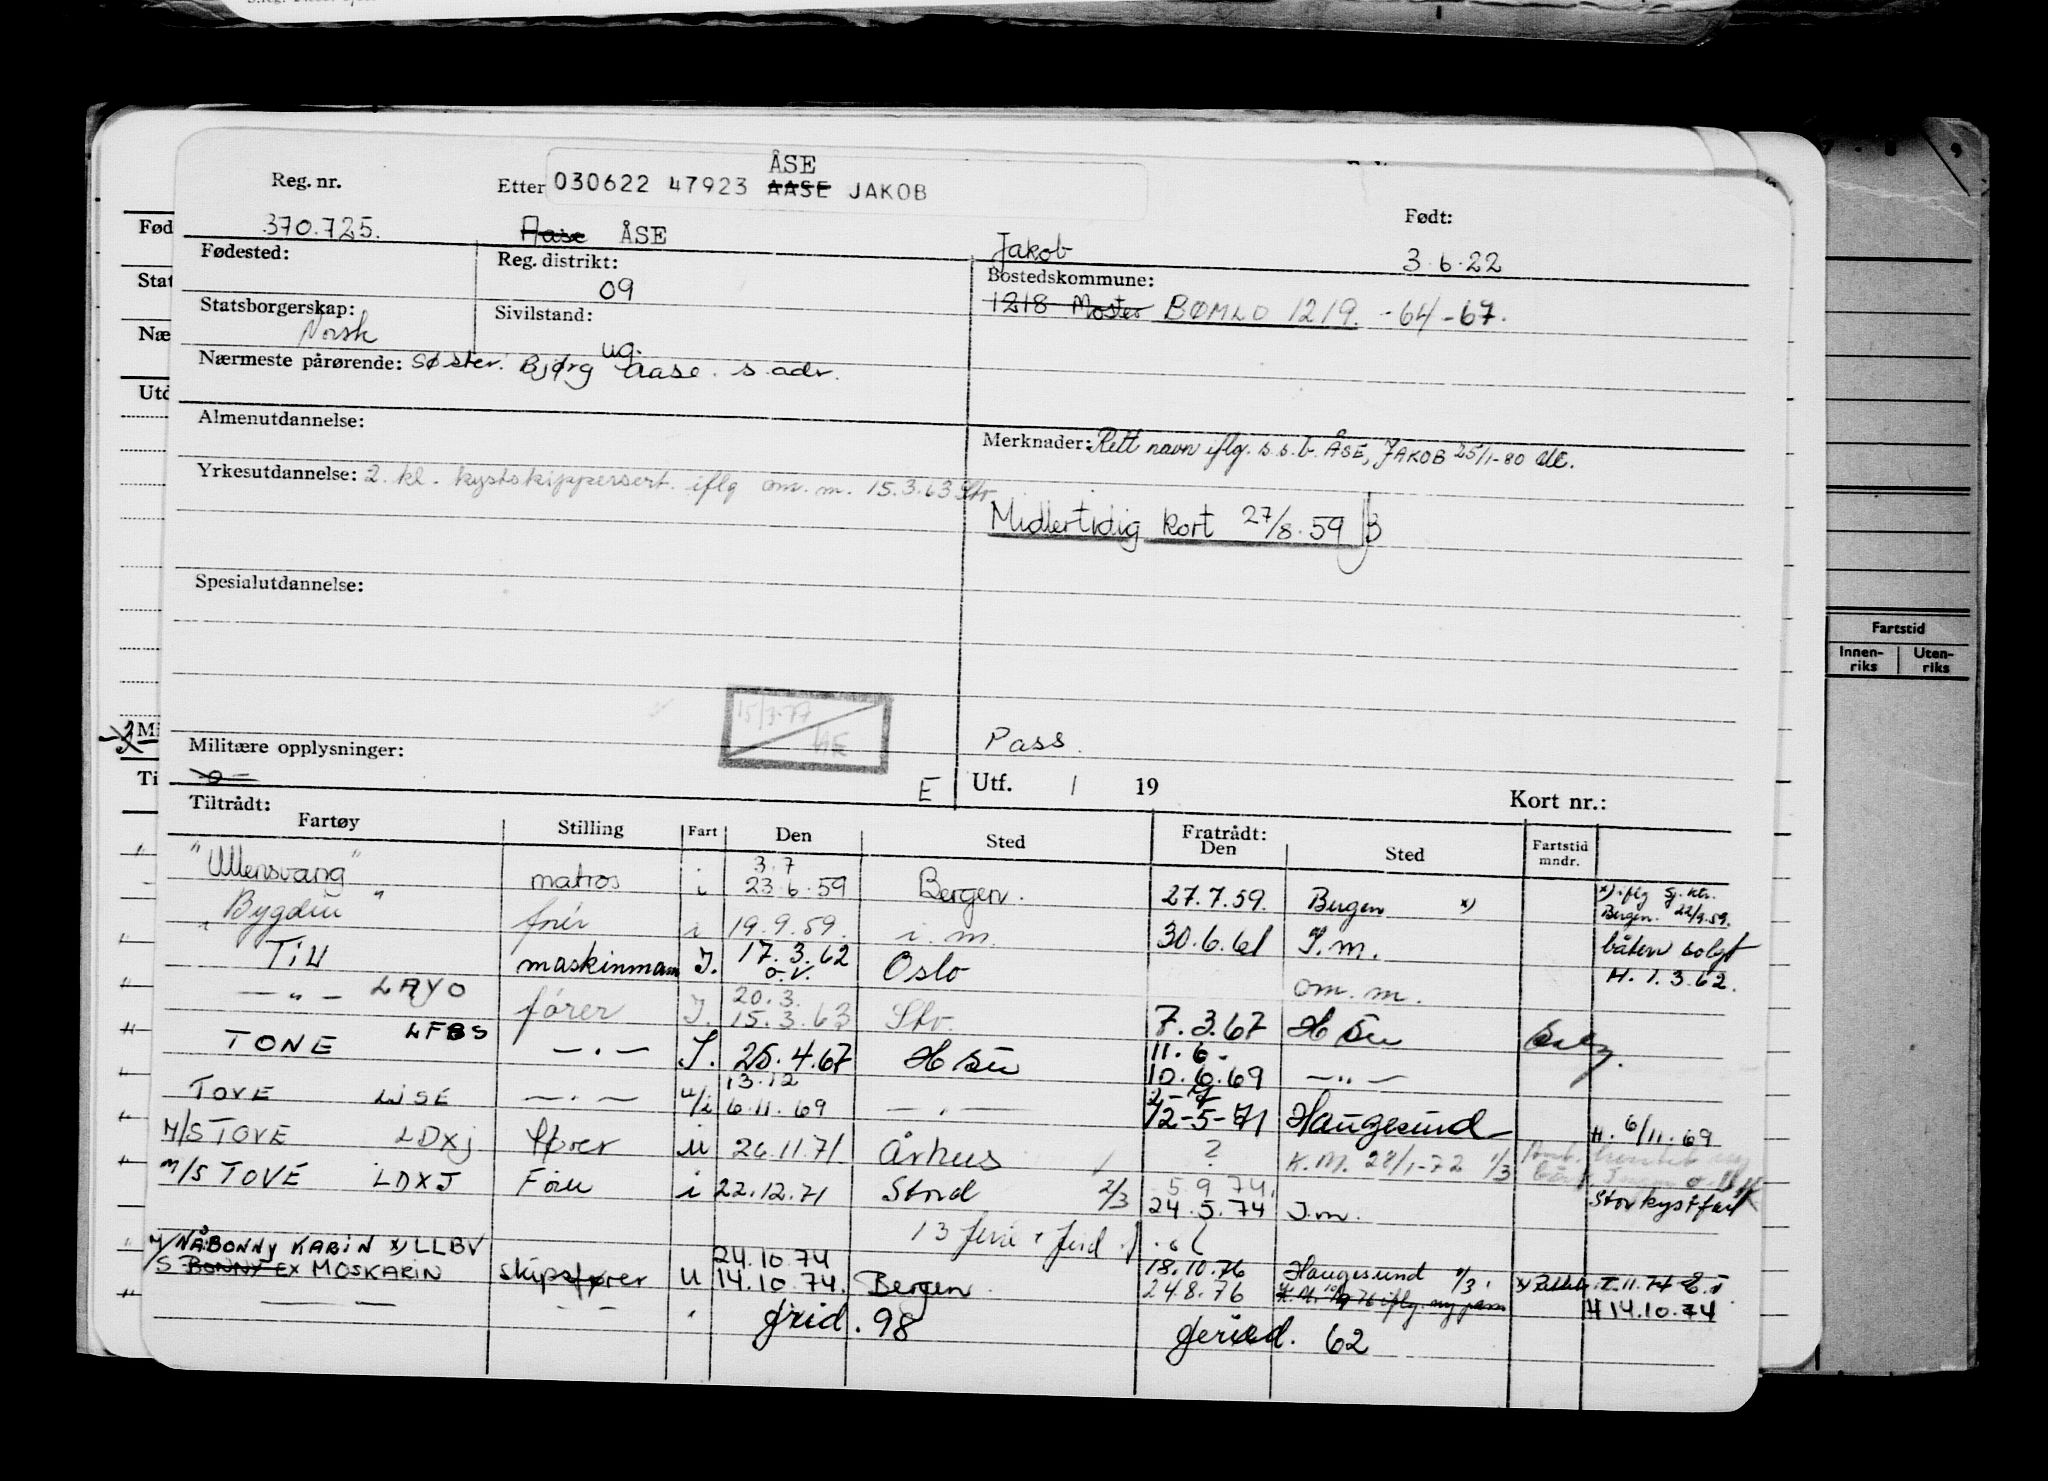 ÅSE
Reg. nr. Etter 030622 47923 AASE JAKOB
Født:
370.725. Aase ÅSE Jakob 3.6.22
Fødested: Reg. distrikt: Bostedskommune:
09 1218 Moster BØMLO 1219. -64-67.
Statsborgerskap: Sivilstand:
Norsk ug.
Nærmeste pårørende: Søster: Bjørg Aase. s. adr.
Almenutdannelse:
Merknader: Rett navn iflg. s.s.b. ÅSE, JAKOB 25/1-80
Yrkesutdannelse: 2. kl. kystskippersert. iflg om. m. 15.3.63 Stv
Midlertidig kort 27/8.59
Spesialutdannelse:
15/3-77
Militære opplysninger: Pass.
E Utf. / 19 Kort nr.:
Tiltrådt: Fratrådt:
Fartøy Stilling Fart Den Sted Den Sted Fartstid mndr.
3.7
"Ullensvang" matros i 23.6.59 Bergen. 27.7.59. Bergen x) x) iflg Sj. ktr. Bergen. 22/9.59.
"Bygdin" i 19.9.59. i.m. 30.6.61 I.m. båten solgt
Till maskinmann I. 17.3.62 Oslo om.m. H. 1.3.62.
o.v.
20.3.
— " — LAYO fører I. 15.3.63 Stv. 7.3.67 H Su
11.6.
TONE LFBS — " — I. 25.4.67 H Su 10.6.69 — " —
13.12
TOVE LISE — " — u/i 6.11.69 — " — 12-5-71 Haugesund H. 6/11.69
M/S TOVE LDXJ fører u 26.11.71. Århus ? K.M. 28/1-72 1/3
5.9.74.
M/S TOVE LDXJ Fører i 22.12.71 Stord 2/3 24.5.74 I.m. Stor kystfart
13
M/ NÅ: BONNY KARIN x) LLBV 24.10.74 18.10.76 Haugesund 1/3
S BONNY EX MOSKARIN skipsfører u 14.10.74. Bergen. 24.8.76 K.M. iflg. ny pass H 14.10.74
— " — frid. 98 feried. 62
Fød
Stat
Næ
Utd
Mi
Ti
Fartstid
Innen-riks Uten-riks